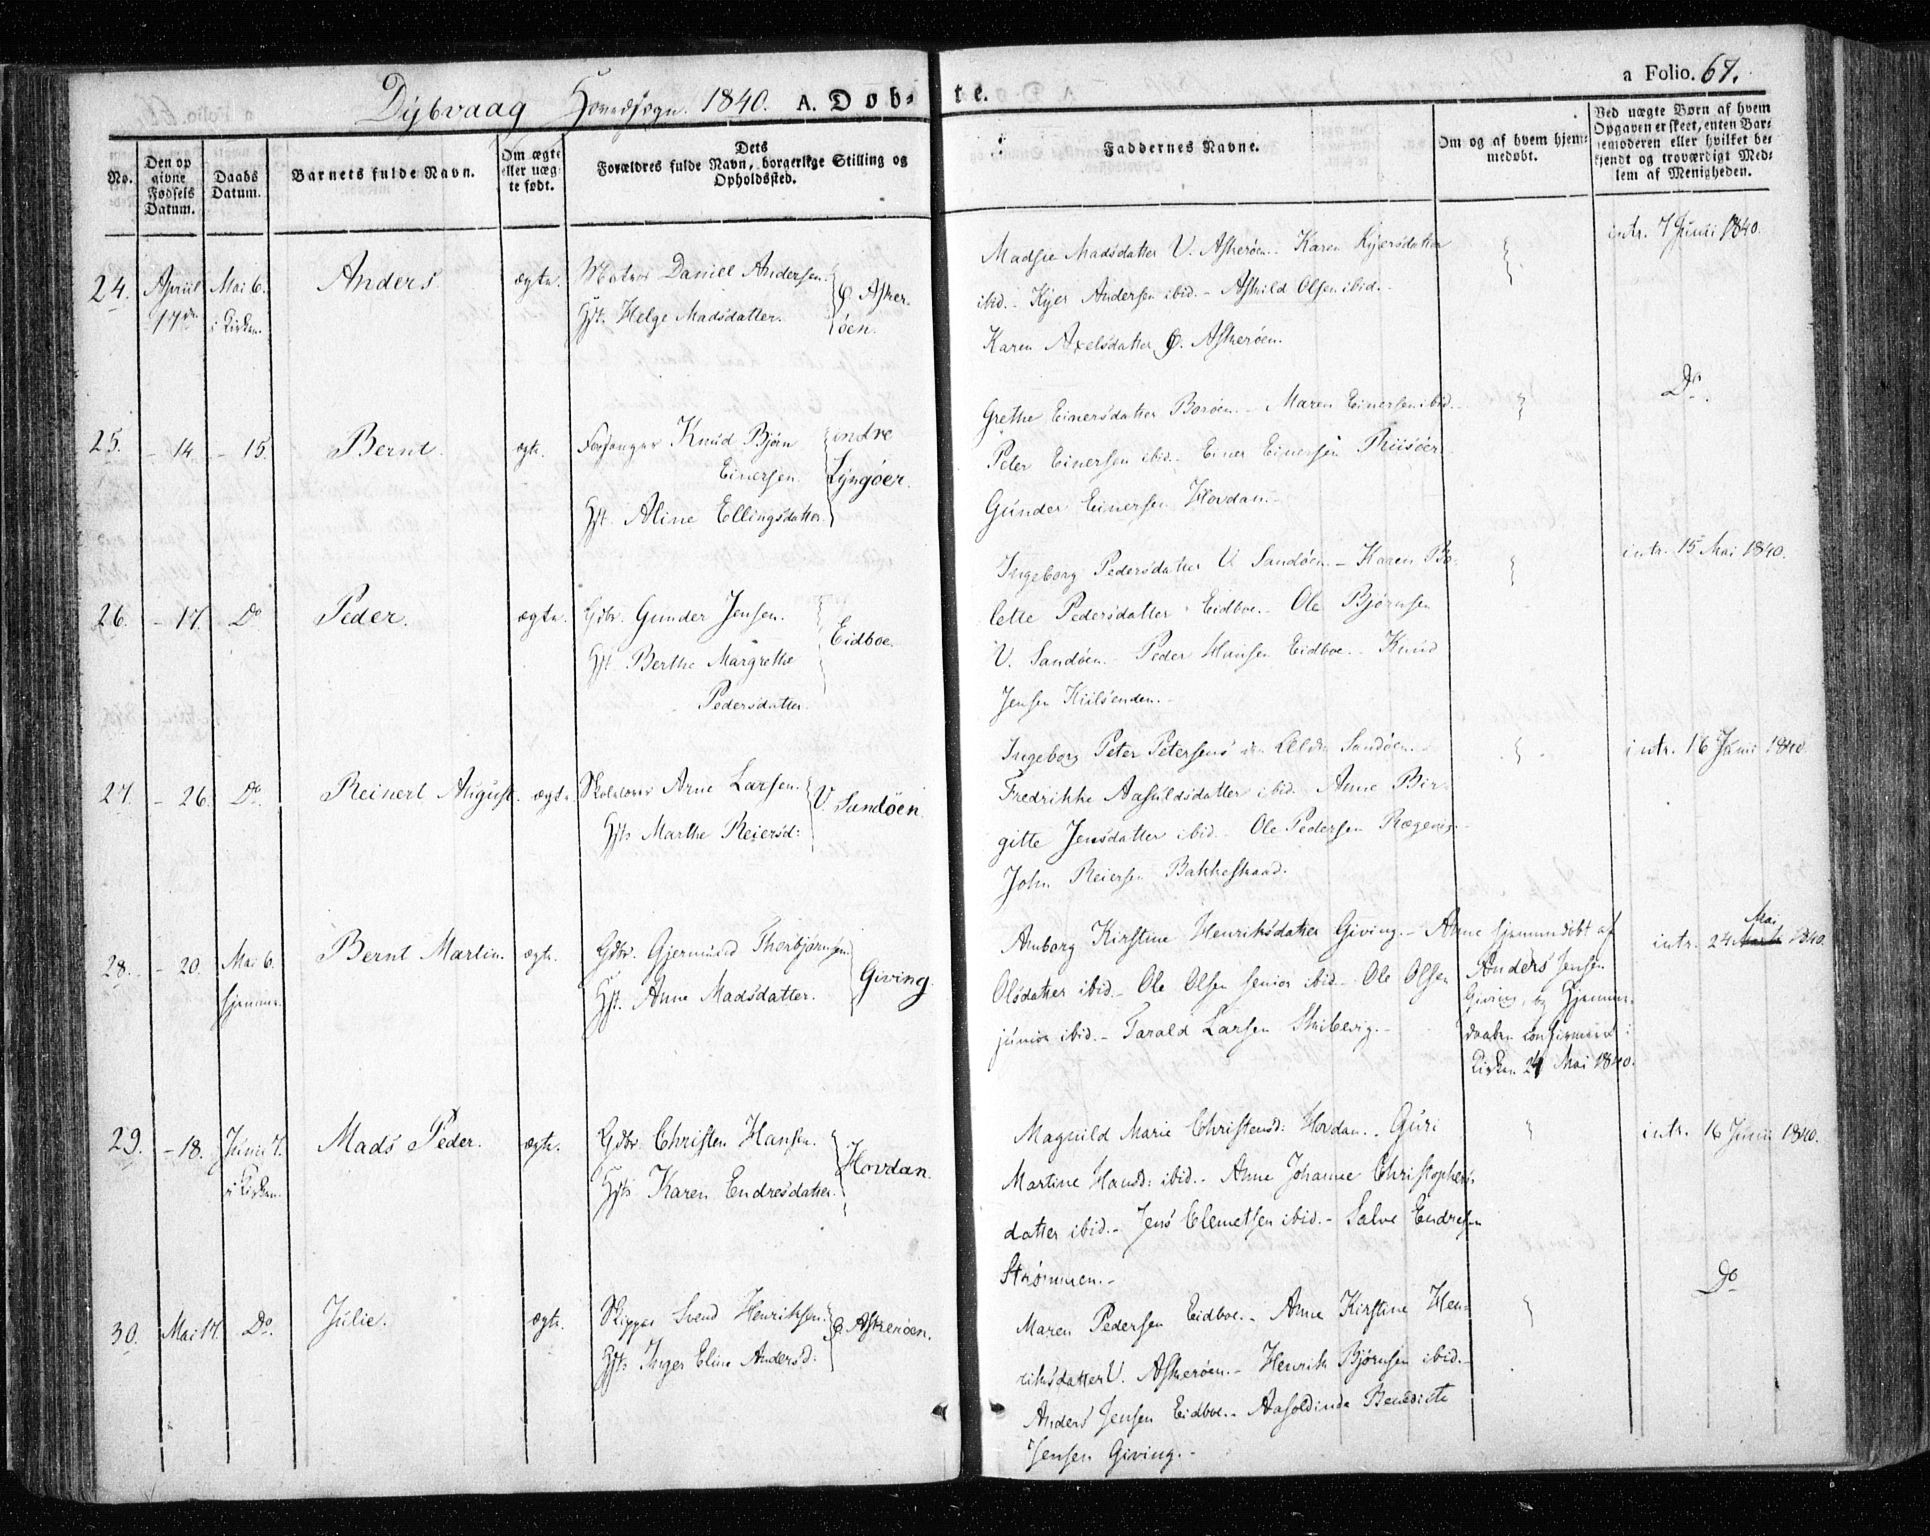 Dybvaag Hovedsogn. 1840. A. Døb-
te.
a Folio. 67.
No.
Den op
givne
Fødsels
Datum.
Daabs
Datum.
Barnets fulde Navn.
Om ægte
eller uæg-
te født.
Dets
Forældres fulde Navn, borgerlige Stilling og
Opholdssted.
Faddernes Navne.
Om og af hvem hjem-
medøbt.
Ved uægte Børn af hvem
Opgaven er skeet, enten Bar-
nemoderen eller hvilket be-
kjendt og troværdigt Med-
lem af Menigheden.
24. April 17de Mai 6. i Kirken. Anders ægte.
Matros Daniel Andersen.
Hst. Helge Madsdatter.
Ø. Asker-
öen.
Madsie Madsdatter V. Askeröen. Karen Kjersdatter
ibid. - Kjer Andersen ibid. - Askild Olsen ibid. -
Karen Axelsdatter Ø. Askeröen.
intr. 7 Junii 1840.
25. - 14 - 15. Bernt. ægte.
Knud Bjørn
Einersen.
Hst. Aline Ellingsdatter.
indre
Lyngöer.
Grethe Einersdatter Boröen. - Maren Einersen ibid. -
Peter Einersen ibid. - Einer Einersen Riisöer
Gunder Einersen Hovdan. -
Do.
26. - 17. Do Peder. ægte.
Gdbr. Gunder Jensen.
Hst. Berthe Margrethe
Pedersdatter.
Eidboe.
Ingeborg Pedersdatter V. Sandöen. - Karen Bo-
lette Pedersdatter Eidboe. - Ole Bjørnsen
V. Sandöen. - Peder Hansen Eidboe. - Knud
Jensen Kiilsenden. -
intr. 15 Mai 1840.
27. - 26. Do. Reinert August. ægte.
Skolelærer Arne Larsen.
Hst. Marthe Reiersd:
V. Sandöen.
Ingeborg Peter Petersens Sandöen.
Fredrikke Aasuldsdatter ibid. Anne Bir-
gitte Jensdatter ibid. - Ole Pedersen
John Reiersen Bakkestraad.
intr. 16 Juni 1840.
28. - 20. Mai 6. hjemme. Bernt Martin. ægte.
Gdbr. Gjermund Thorbjørnsen
Hst. Anne Madsdatter.
Giving.
Amborg Kirstine Henriksdatter Giving. - Anne
Olsdatter ibid. - Ole Olsen senior ibid. - Ole Olsen
junior ibid. - Tarald Larsen Skibevig. -
hjemmedøbt af
Anders Jensen
Giving, og Hjemme-
daaben confirmeret i
Kirken 24 Mai 1840.
Mai
intr. 24 1840.
29. - 18. Junii 7. i Kirken. Mads Peder. ægte.
Gdbr. Christen Hansen.
Hst. Karen Endresdatter.
Hovdan.
Magnild Marie Christensd: Hovdan. - Guri
Martine Hansd: ibid. - Anne Johanne Christophers-
datter ibid. - Jens Clemetsen ibid. - Salve Endresen
Strömmen. -
intr. 16 Junii 1840.
30. Mai 17. Do. Julie. ægte.
Skipper Svend Henriksen.
Hst. Inger Eline Andersd:
Ø. Askeröen.
Maren Pedersen Eidboe. - Anne Kirstine Hen-
riksdatter V. Askeröen. - Henrik Bjørnsen ibid. -
Anders Jensen Eidboe. - Aasoldinda Benedicte
Jensen Giving. -
Do